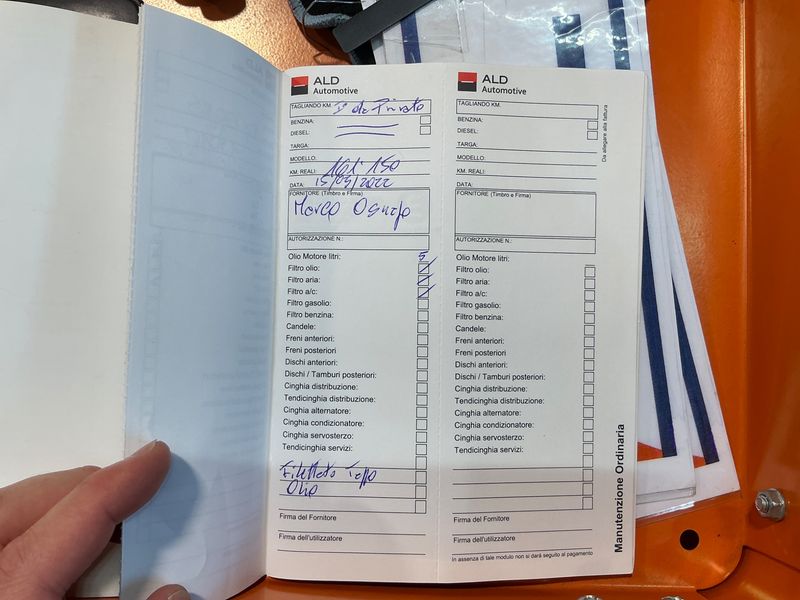 ALD
Automotive
TAGLIANDO KM. 1° da Privato
BENZINA:
DIESEL:
TARGA:
MODELLO:
KM. REALI: 161' 150
DATA: 15/03/2022
FORNITORE (Timbro e Firma)
Marco
AUTORIZZAZIONE N.:
Olio Motore litri: 5
Filtro olio:
Filtro aria:
Filtro a/c:
Filtro gasolio:
Filtro benzina:
Candele:
Freni anteriori:
Freni posteriori
Dischi anteriori:
Dischi / Tamburi posteriori:
Cinghia distribuzione:
Tendicinghia distribuzione:
Cinghia alternatore:
Cinghia condizionatore:
Cinghia servosterzo:
Tendicinghia servizi:
Filettato Tappo
Olio
Firma del Fornitore
Firma dell'utilizzatore
ALD
Automotive
TAGLIANDO KM.
BENZINA:
DIESEL:
TARGA:
MODELLO:
KM. REALI:
DATA:
FORNITORE (Timbro e Firma)
AUTORIZZAZIONE N.:
Olio Motore litri:
Filtro olio:
Filtro aria:
Filtro a/c:
Filtro gasolio:
Filtro benzina:
Candele:
Freni anteriori:
Freni posteriori
Dischi anteriori:
Dischi / Tamburi posteriori:
Cinghia distribuzione:
Tendicinghia distribuzione:
Cinghia alternatore:
Cinghia condizionatore:
Cinghia servosterzo:
Tendicinghia servizi:
Firma del Fornitore
Firma dell'utilizzatore
In assenza di tale modulo non si darà seguito al pagamento
Da allegare alla fattura
Manutenzione Ordinaria